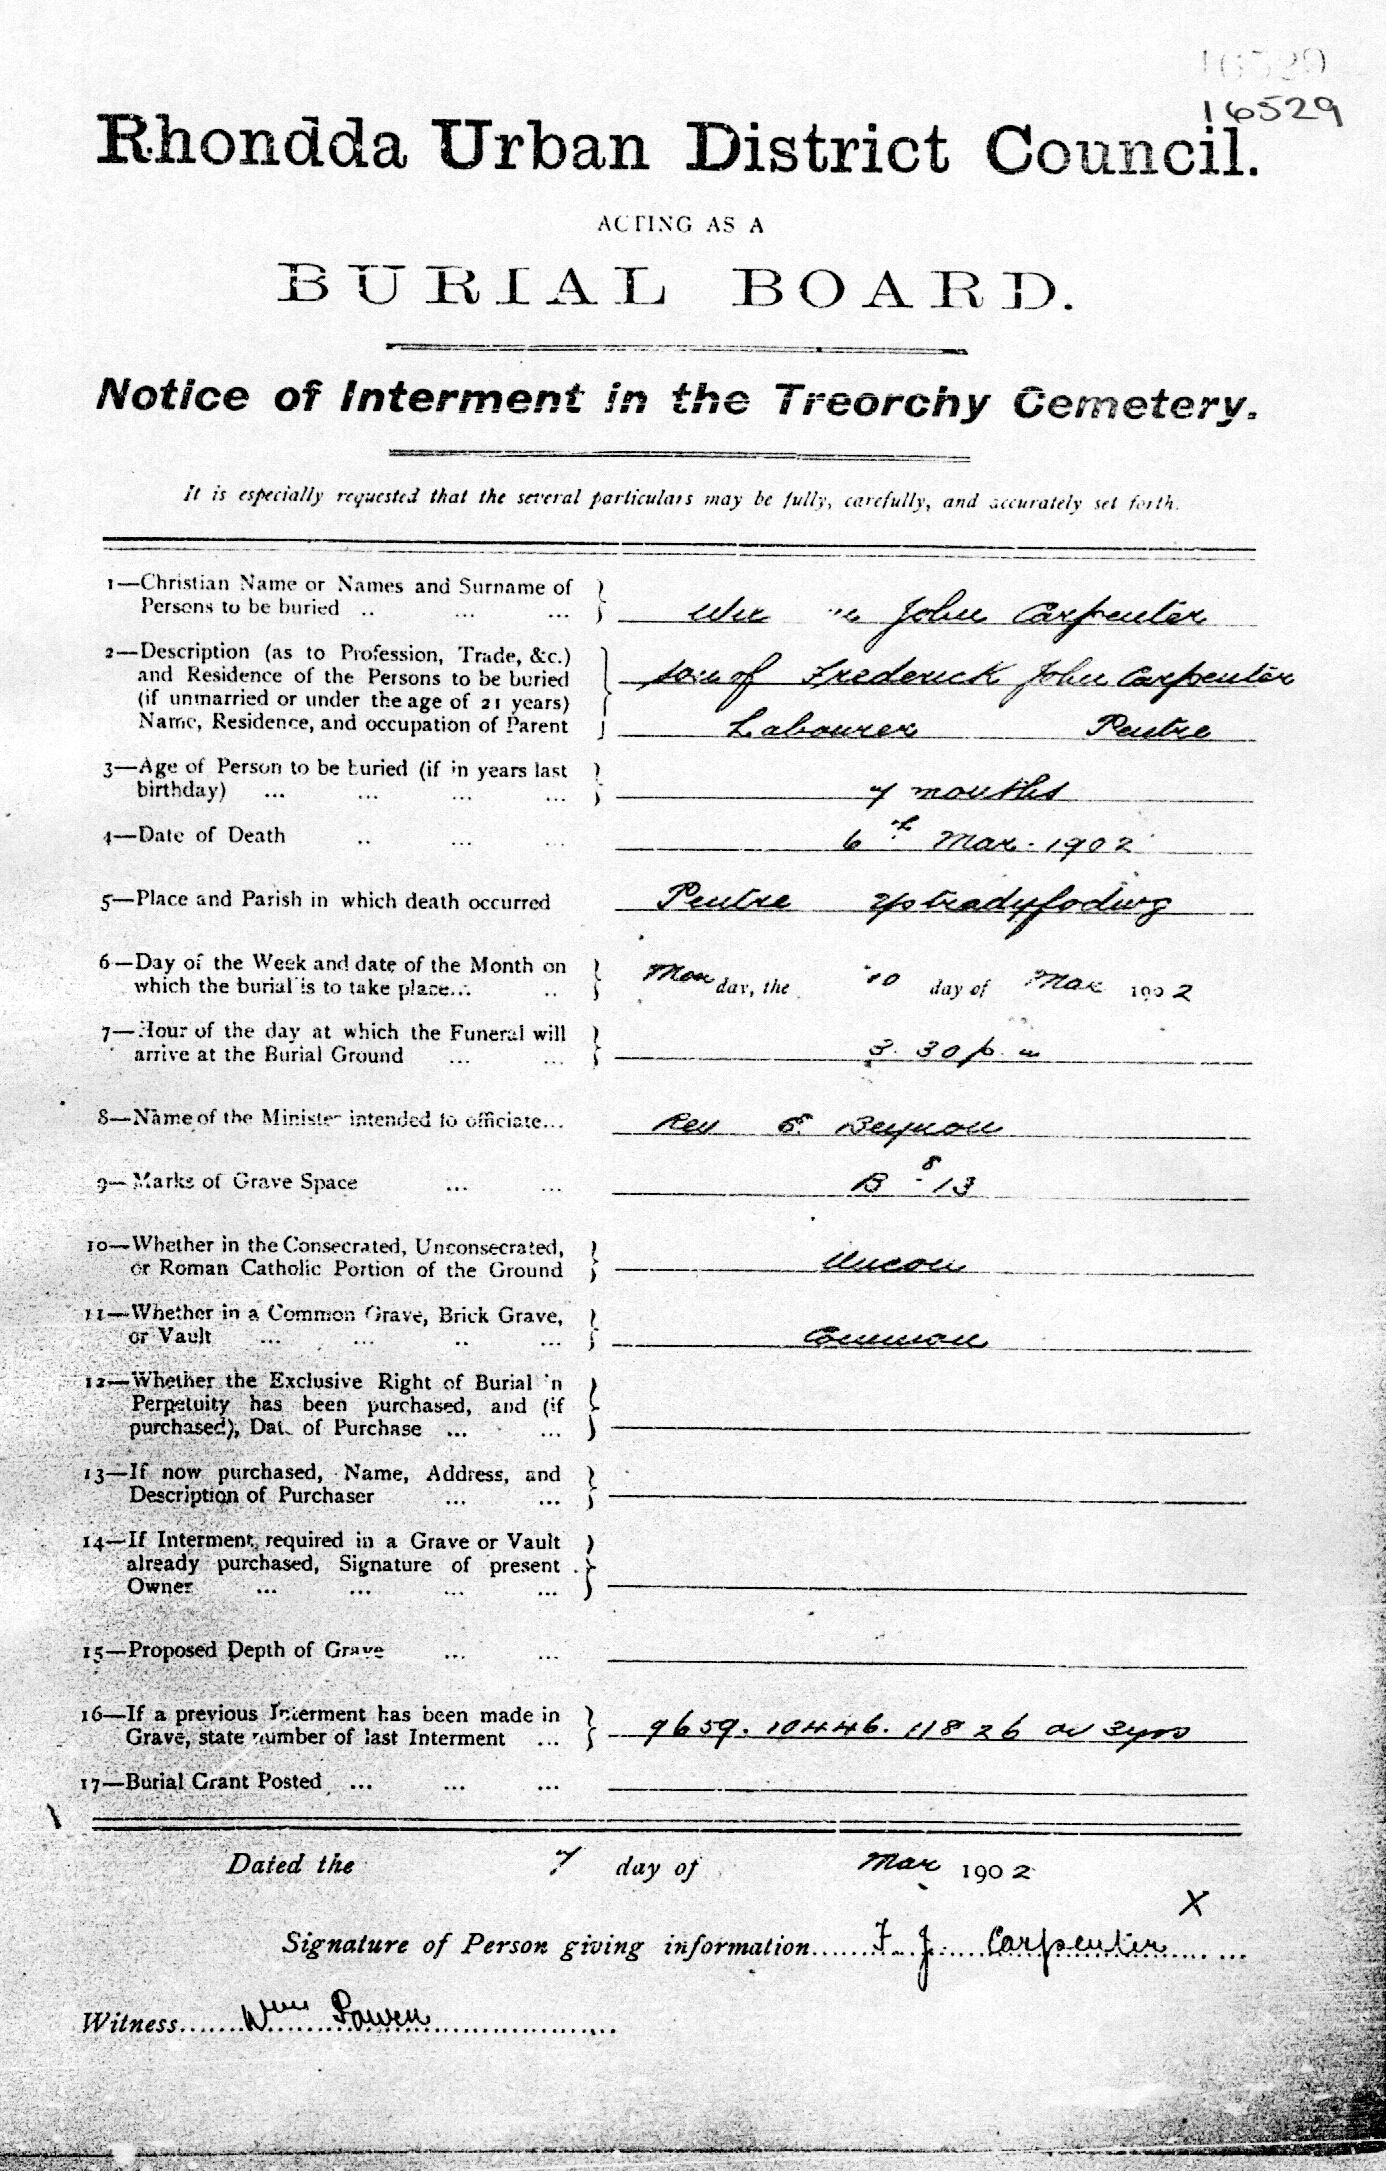 16529
16529
Rhondda Urban District Council.
ACTING AS A
BURIAL BOARD.
Notice of Interment in the Treorchy Cemetery.
It is especially requested that the several particulars may be fully, carefully, and accurately set forth.
1—Christian Name or Names and Surname of
Persons to be buried .. ... ... John Carpenter
2—Description (as to Profession, Trade, &c.)
and Residence of the Persons to be buried son of Frederick John Carpenter
(if unmarried or under the age of 21 years)
Name, Residence, and occupation of Parent Labourer Pentre
3—Age of Person to be buried (if in years last
birthday) ... ... ... ... 7 months
4—Date of Death .. ... ... 6th Mar. 1902
5—Place and Parish in which death occurred Pentre Ystradyfodwg
6—Day of the Week and date of the Month on
which the burial is to take place... .. Monday, the 10 day of Mar 1902
7—Hour of the day at which the Funeral will
arrive at the Burial Ground ... ... 3.30 p.m
8—Name of the Minister intended to officiate... Rev E. Beynon
9—Marks of Grave Space ... ... B 8 - 13
10—Whether in the Consecrated, Unconsecrated,
or Roman Catholic Portion of the Ground Uncon
11—Whether in a Common Grave, Brick Grave,
or Vault ... ... .. ... Common
12—Whether the Exclusive Right of Burial in
Perpetuity has been purchased, and (if
purchased), Date of Purchase ... ...
13—If now purchased, Name, Address, and
Description of Purchaser ... ...
14—If Interment required in a Grave or Vault
already purchased, Signature of present
Owner ... ... ... ...
15—Proposed Depth of Grave ... ...
16—If a previous Interment has been made in
Grave, state number of last Interment ... 9659. 10446. 11826 ov 3yrs
17—Burial Grant Posted ... ... ...
Dated the 7 day of Mar 1902
X
Signature of Person giving information...... F. J. Carpenter
Witness...... Wm Powen